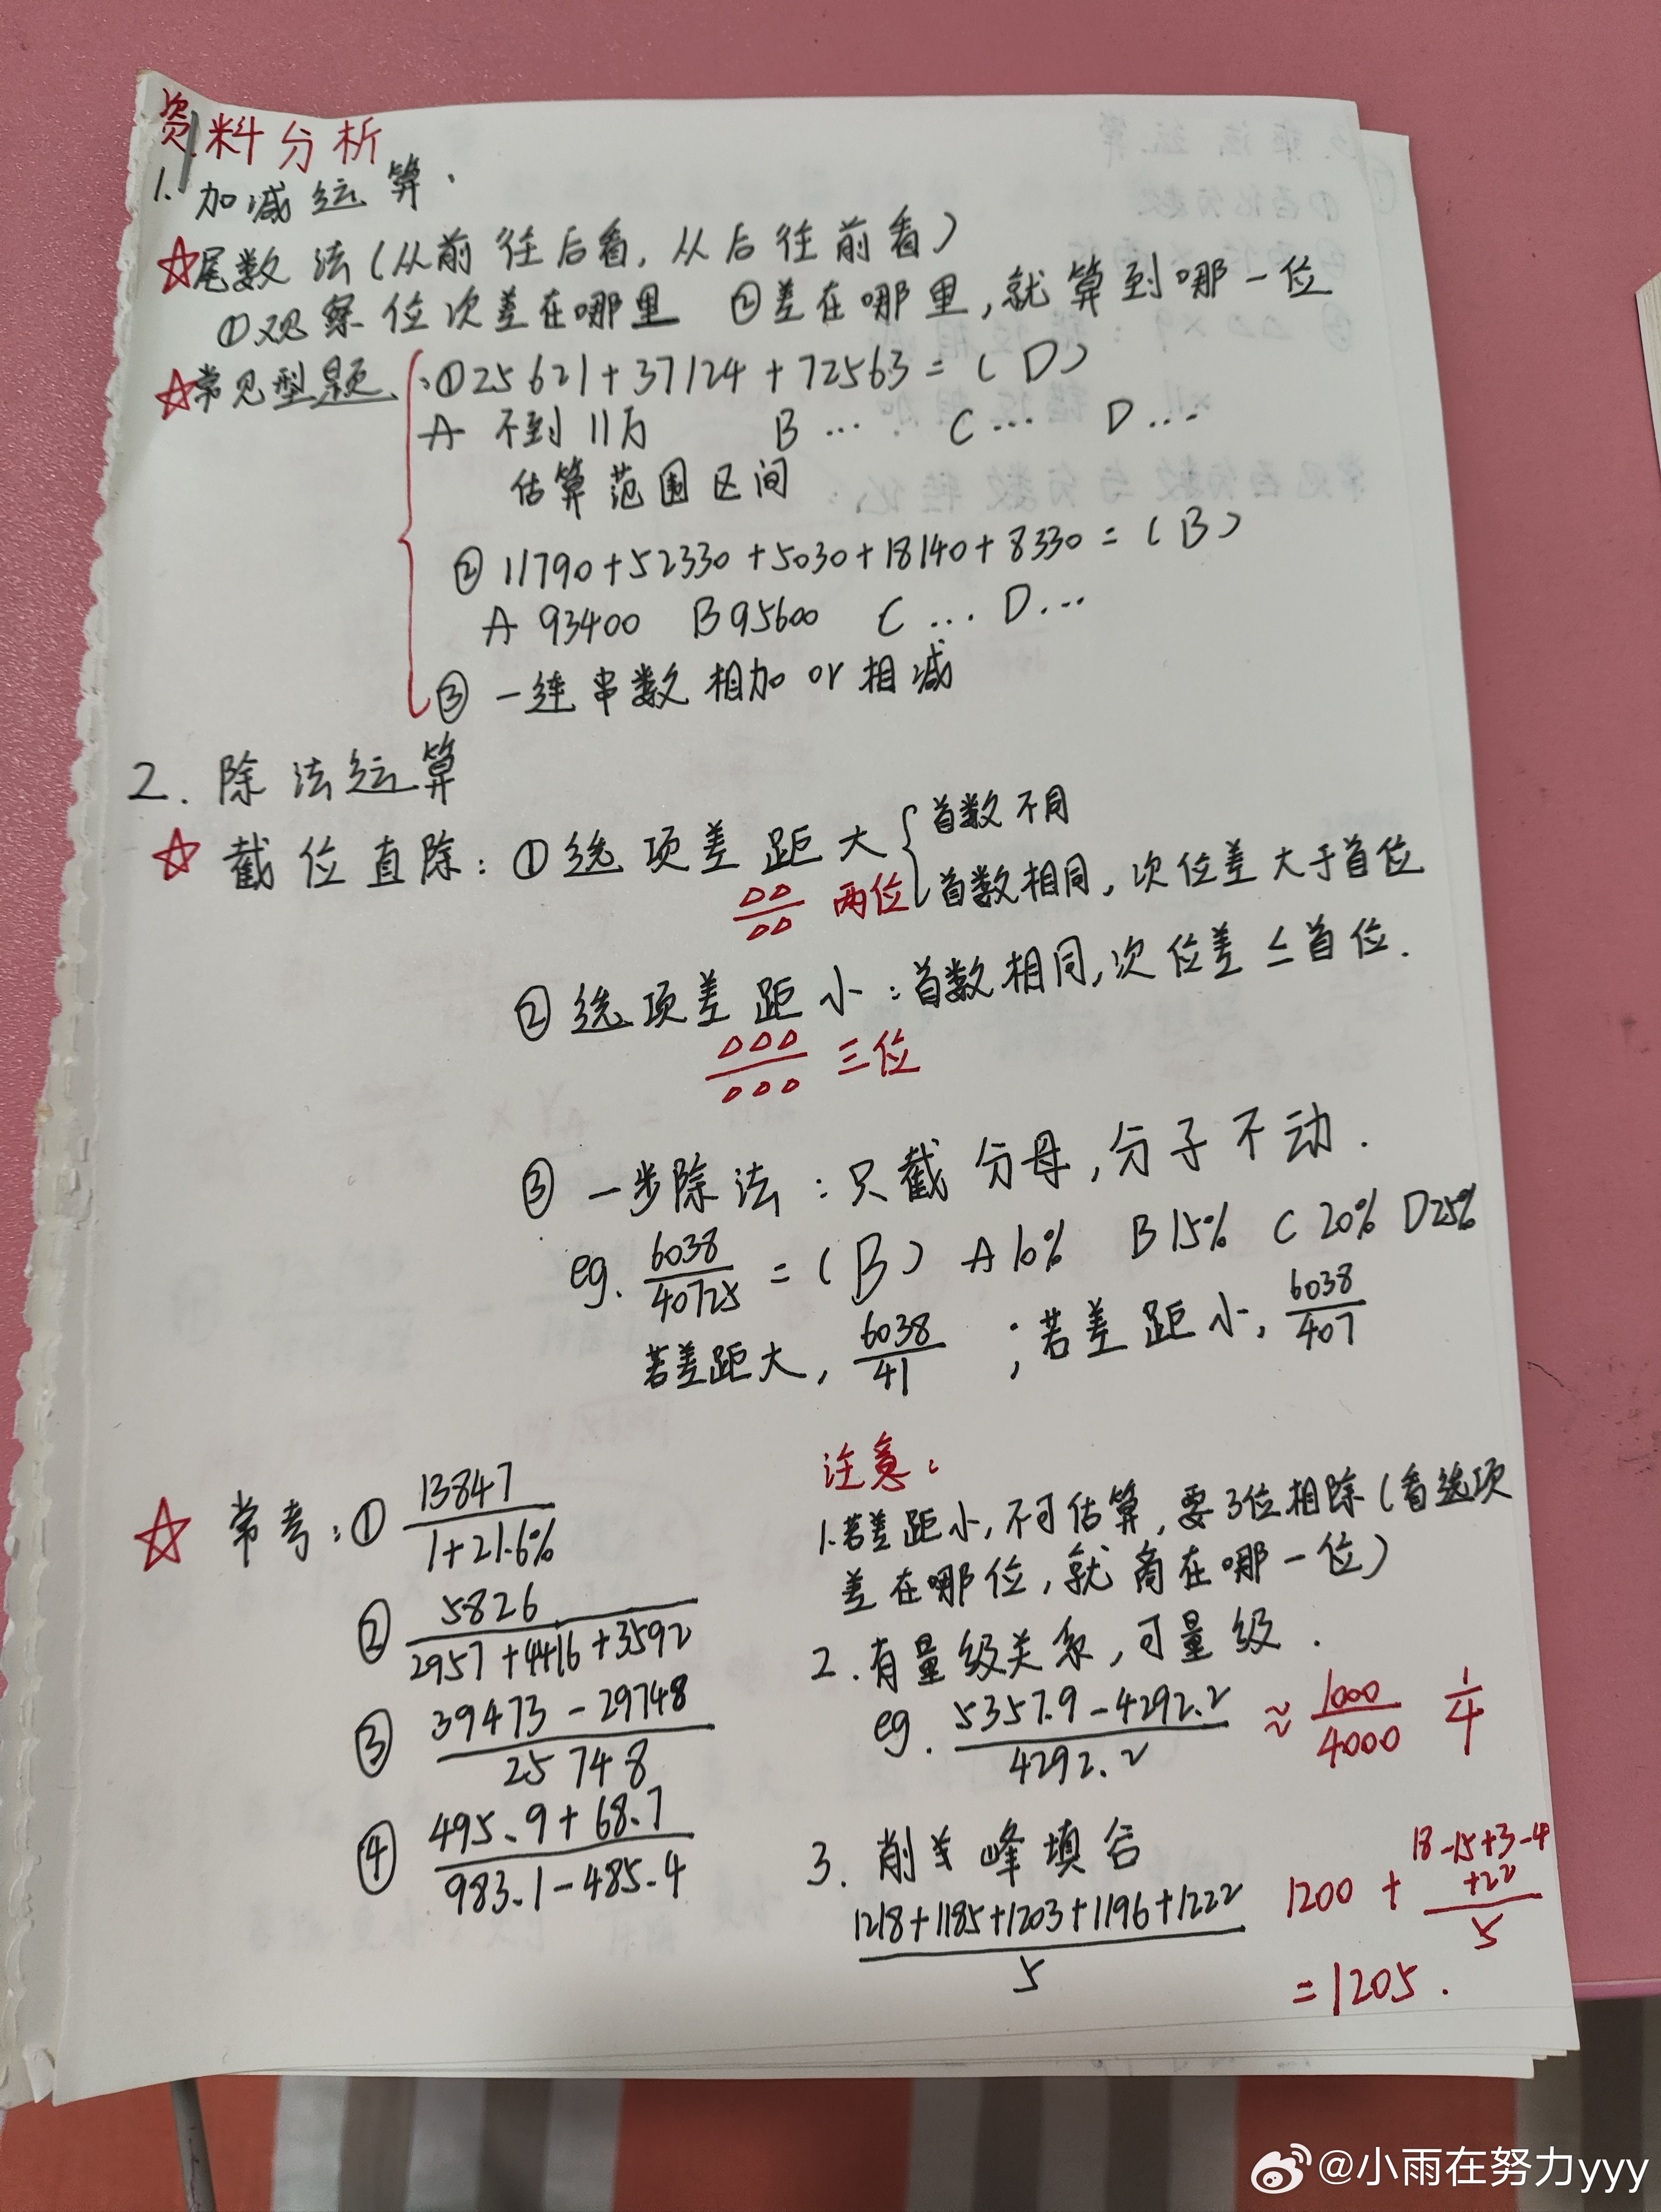 资料分析
1. 加减运算.
☆尾数法(从前往后看,从后往前看)
①观察位次差在哪里 ②差在哪里,就算到哪一位
☆常见型题:①25621+37124+72563=(D)
A 不到11万 B … C … D …
估算范围区间
②11790+52330+5030+18140+8330=(B)
A 93400 B 95600 C … D …
③一连串数相加or相减
2. 除法运算
☆ 截位直除:①选项差距大{首数不同
首数相同,次位差大于首位
△△/△△ 两位
②选项差距小:首数相同,次位差≤首位.
△△△/△△△ 三位
③一步除法:只截分母,分子不动.
eg. 6038/40725 =(B) A 10% B 15% C 20% D 25%
若差距大, 6038/41 ;若差距小, 6038/407
☆ 常考:① 13847/(1+21.6%)
② 5826/(2957+4416+3592)
③ (39473-29748)/25748
④ (495.9+68.7)/(983.1-485.4)
注意:
1.若差距小,不可估算,要3位相除(看选项
差在哪位,就商在哪一位)
2.有量级关系,可量级.
eg. (5357.9-4292.2)/4292.2 ≈ 1000/4000 1/4
3. 削峰填谷
(1218+1185+1203+1196+1222)/5 1200+(18-15+3-4+22)/5
=1205.
@小雨在努力yyy